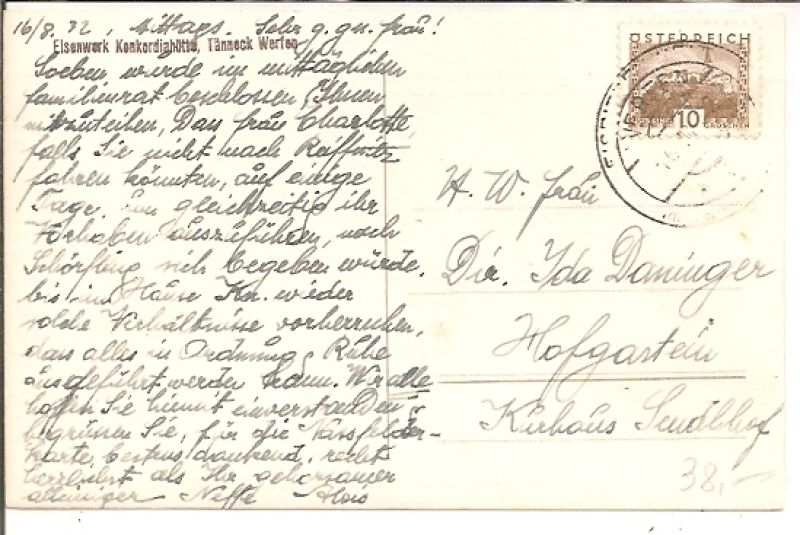 16/8. 32, Mittags. Sehr g. gn. Frau!
Eisenwerk Konkordiahütte, Tänneck Werfen
Soeben wurde im mittäglichen
Familienrat beschlossen, Ihnen
mitzuteilen, Dass Frau Charlotte,
falls Sie nicht nach
fahren könnten, auf einige
Tage, um gleichzeitig ihr
Vorhaben auszuführen, nach
Schörfling sich begeben würde,
bis im Hause Kr. wieder
solche Verhältnisse vorherrschen,
dass alles in Ordnung & Ruhe
ausgeführt werden kann. Wir alle
hoffen Sie hiemit einverstanden &
begrüssen Sie, für die Nassfelder-
karte bestens dankend, recht
herzlichst als Ihr gehorsamer
alleiniger Neffe Alois
ÖSTERREICH
10
GROSCHEN
H. W. Frau
Dir. Ida Daninger
Hofgastein
Kurhaus Sendlhof
38,-